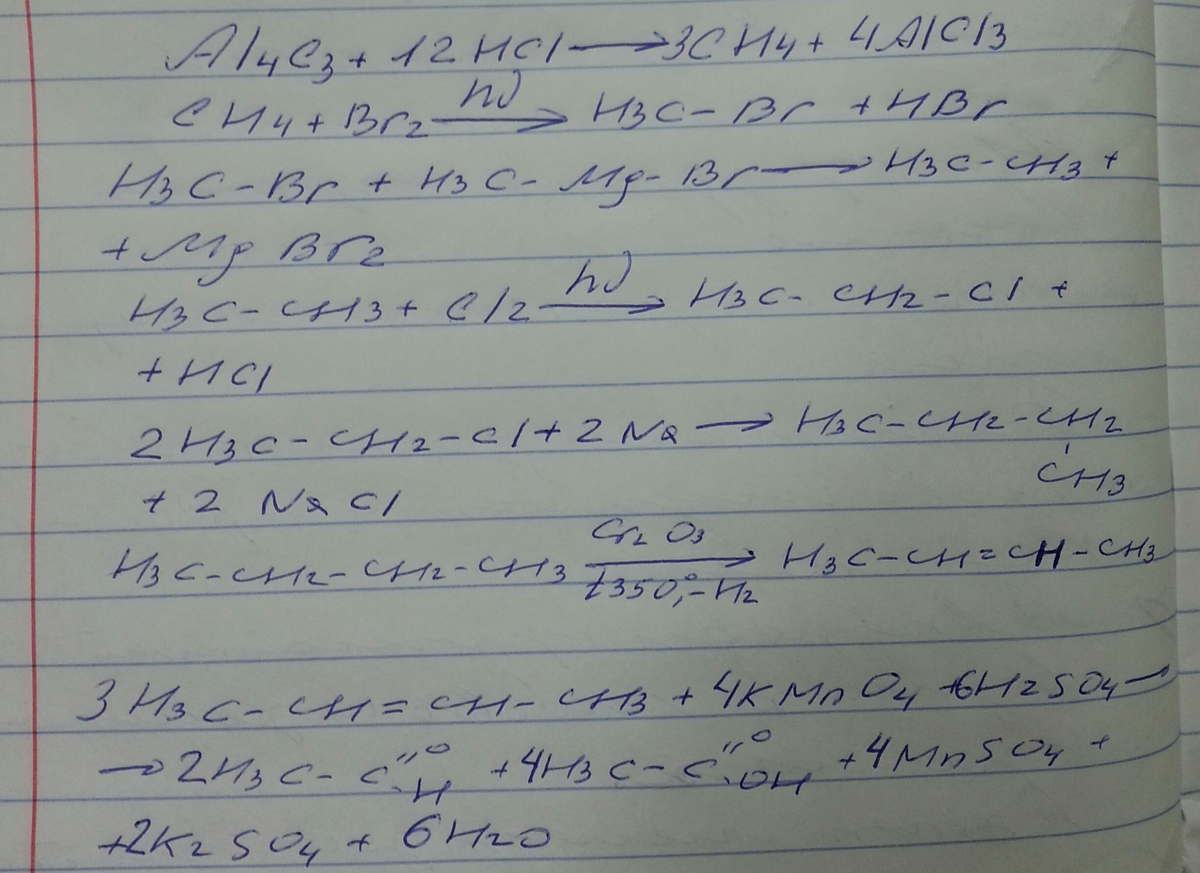 Al4C3 + 12HCl → 3CH4 + 4AlCl3
hν
CH4 + Br2 → H3C-Br + HBr
H3C-Br + H3C-Mg-Br → H3C-CH3 +
+ Mg Br2
hν
H3C-CH3 + Cl2 → H3C-CH2-Cl +
+ HCl
2H3C-CH2-Cl + 2Na → H3C-CH2-CH2
CH3
+ 2 NaCl
Cr2O3
H3C-CH2-CH2-CH3 → H3C-CH=CH-CH3
t350°,-H2
3H3C-CH=CH-CH3 + 4KMnO4 + 6H2SO4 →
→ 2H3C-C"OH + 4H3C-C"OOH + 4MnSO4 +
+ 2K2SO4 + 6H2O